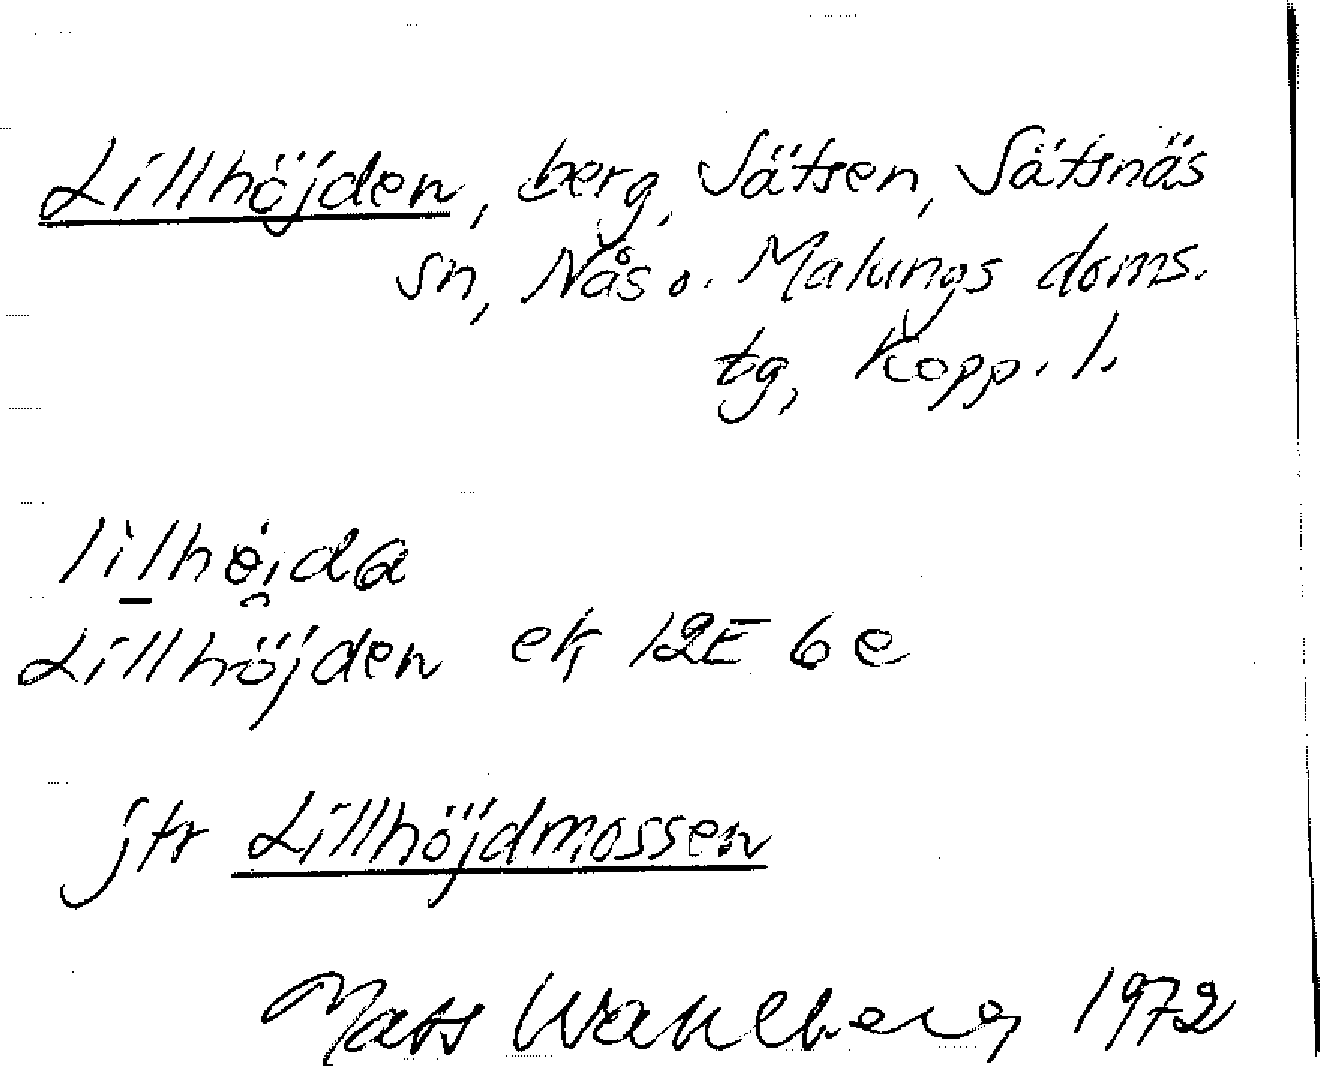 Lillhöjden, berg, Sätsen, Sätsnäs
sn, Nås o. Malungs doms.
tg, Kopp. l.
Lillhöjden ek 12E 6e
jfr Lillhöjdmossen
Mats Wahlberg 1972